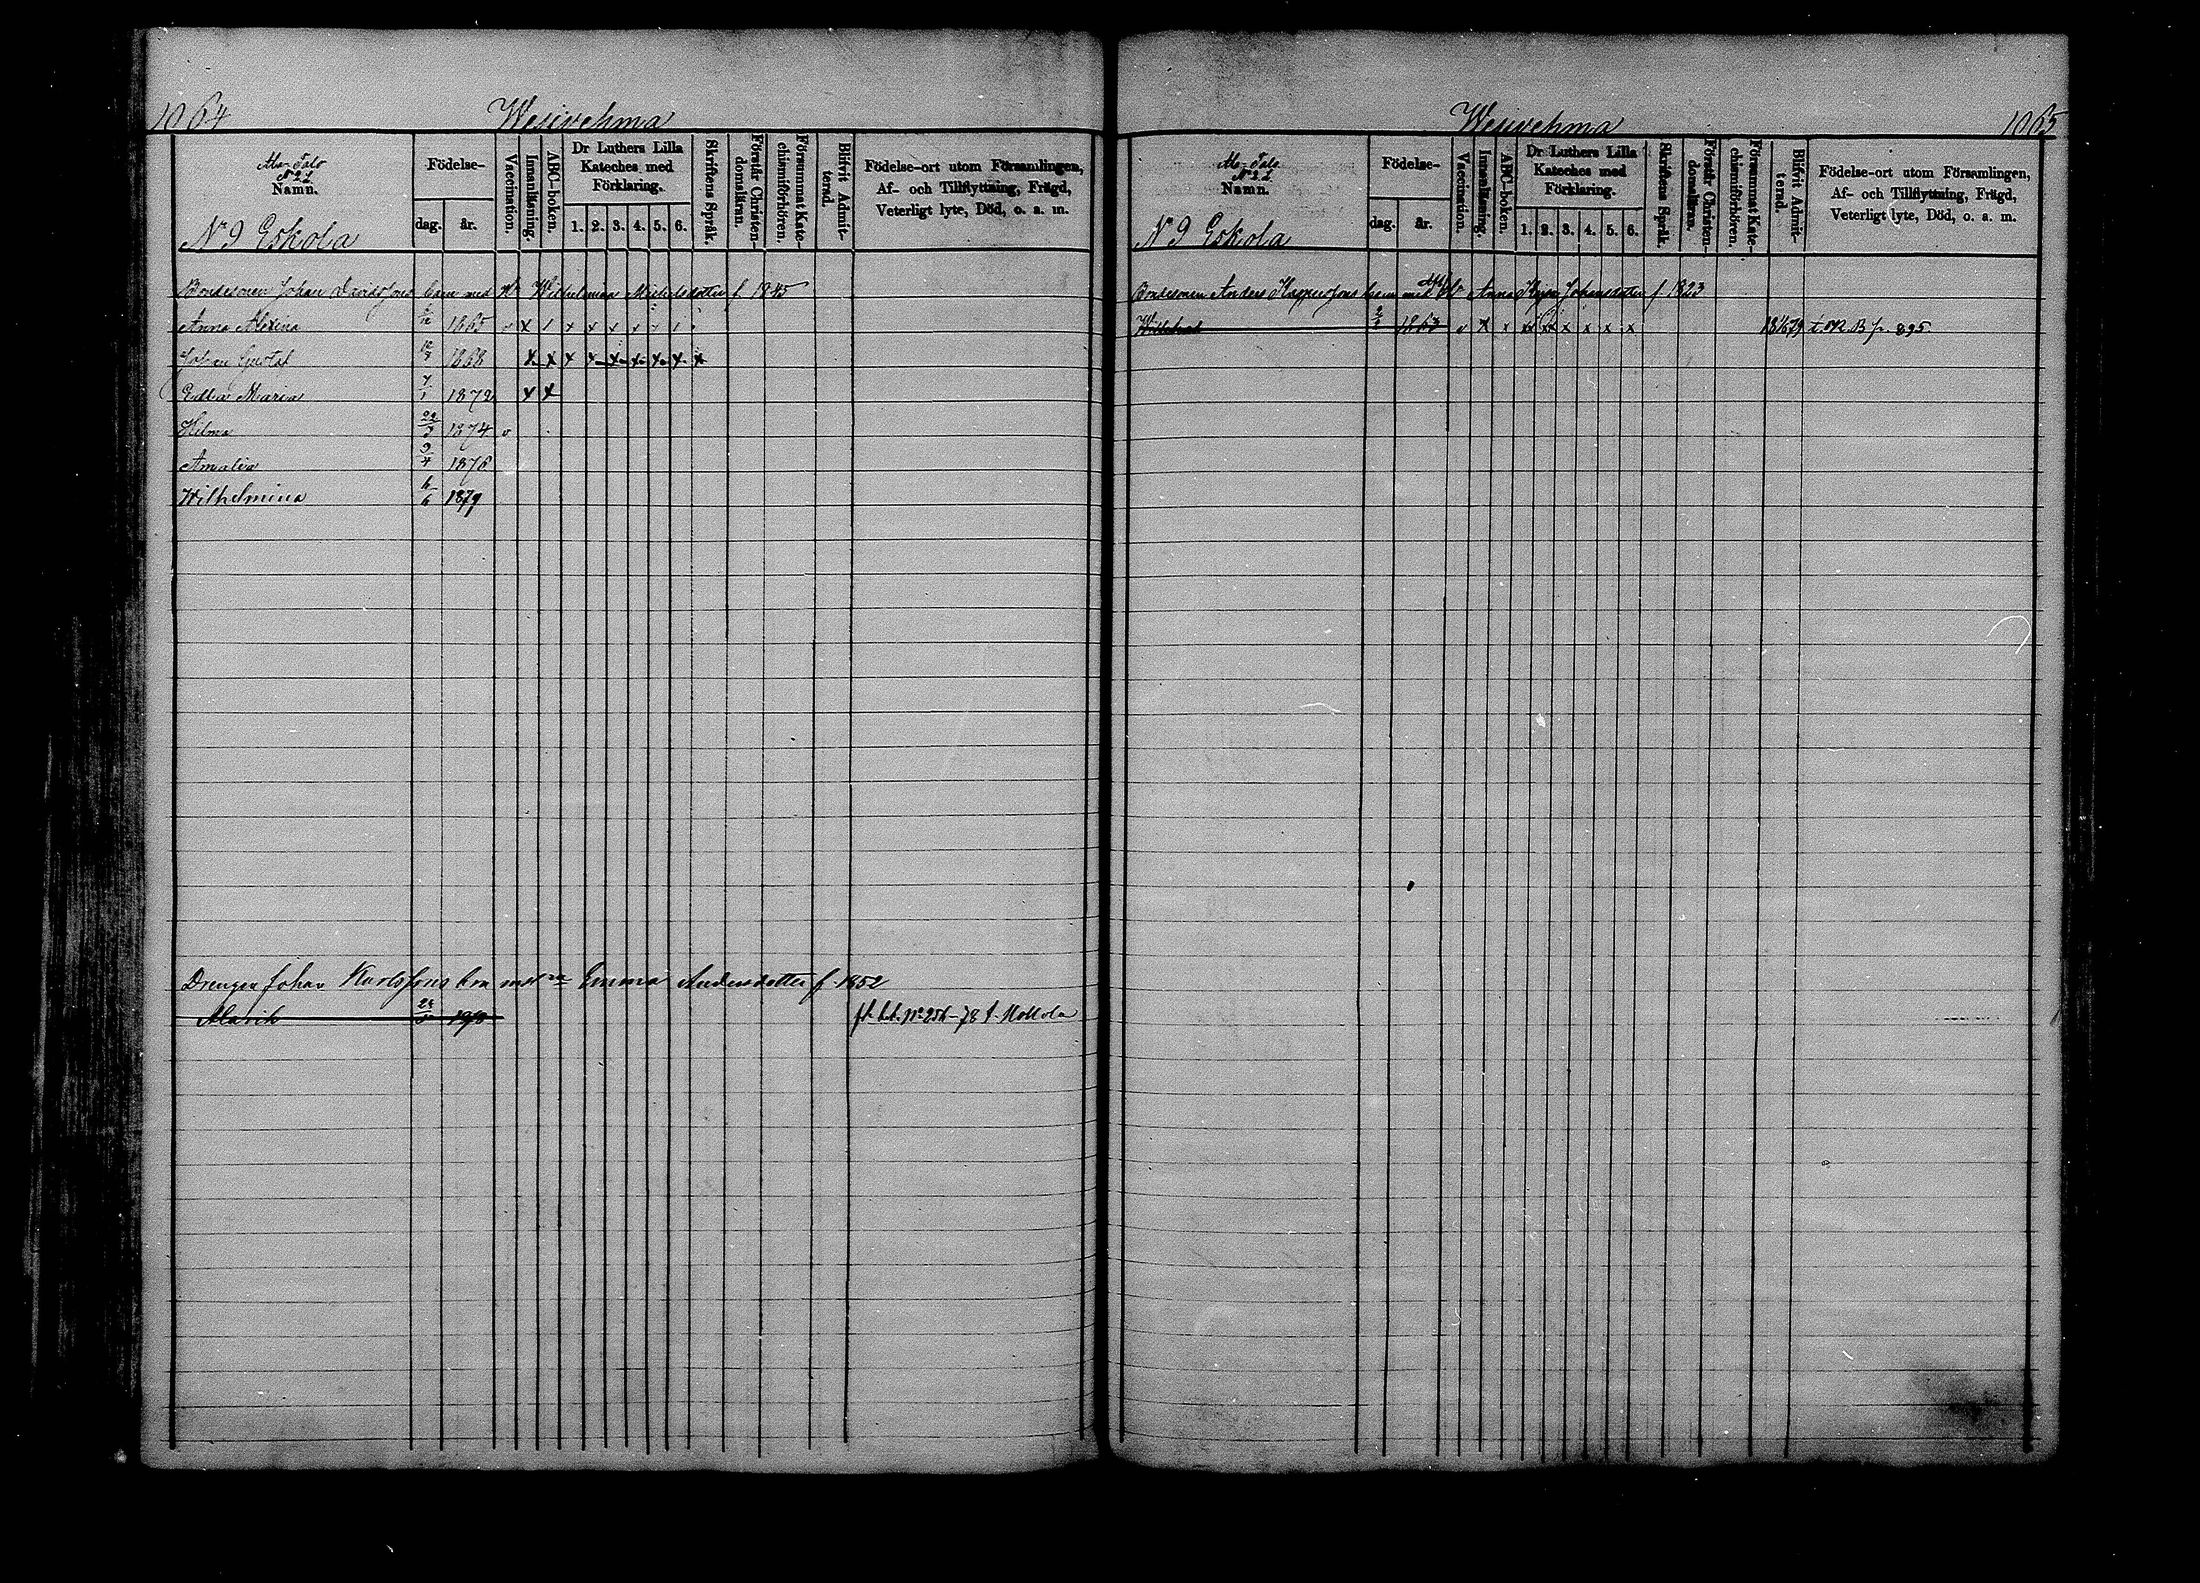 1064 Wesivehma
Ala-Talo
N 2 L
Namn.
Födelse-
dag. år.
Vaccination.
Innanläsning.
ABC-boken.
Dr Luthers Lilla
Kateches med
Förklaring.
1. 2. 3. 4. 5. 6.
Skriftens Språk.
Förstår Christen-
domsläran.
Försummat Kate-
chismiförhören.
Blifvit Admit-
terad.
Födelse-ort utom Församlingen,
Af- och Tillflyttning, Frägd,
Veterligt lyte, Död, o. a. m.
N 9 Eskola
Bondesonen Johan Davidssons barn med H Wilhelmina Michelsdotter f. 1845
Anna Alexina 1865
Johan Gustaf 1868 x x x x x x x x x
Edla Maria 7/1 1872 x x
Hilma 22/3 1874 v
Amalia 9/4 1876
Wilhelmina 6/6 1879
Drengen Johan Karlssons brn med Emma Andersdotter f. 1852
Alarik 1878 fl. bet. No 256-78 t. Hollola
Wesivehma 1065
Ala-Talo
N 2 L
Namn.
Födelse-
dag. år.
Vaccination.
Innanläsning.
ABC-boken.
Dr Luthers Lilla
Kateches med
Förklaring.
1. 2. 3. 4. 5. 6.
Skriftens Språk.
Förstår Christen-
domsläran.
Försummat Kate-
chismiförhören.
Blifvit Admit-
terad.
Födelse-ort utom Församlingen,
Af- och Tillflyttning, Frägd,
Veterligt lyte, Död, o. a. m.
N 9 Eskola
Bondesonen Anders Kasperssons barn med Anna Kajsa Johansdotter f. 1823
1863 v x x x x x x x x t. N.B p. 895